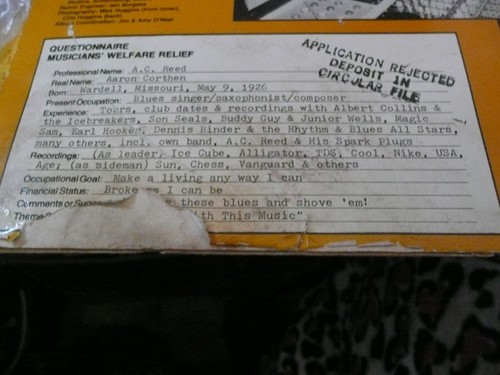 Remix Engineer: Jim Burgess
Photography: Mick Huggins (front cover),
Cilla Huggins (back)
Album Coordination: Jim & Amy O'Neal
QUESTIONNAIRE
MUSICIANS' WELFARE RELIEF
APPLICATION REJECTED
DEPOSIT IN
CIRCULAR FILE
Professional Name: A.C. Reed
Real Name: Aaron Corthen
Born: Wardell, Missouri, May 9, 1926
Present Occupation: Blues singer/saxophonist/composer
Experience: Tours, club dates & recordings with Albert Collins &
the Icebreakers, Son Seals, Buddy Guy & Junior Wells, Magic
Sam, Earl Hooker, Dennis Binder & the Rhythm & Blues All Stars,
many others, incl. own band, A.C. Reed & His Spark Plugs
Recordings: (As leader) Ice Cube, Alligator, TDS, Cool, Nike, USA,
Age; (as sideman) Sun, Chess, Vanguard & others
Occupational Goal: Make a living any way I can
Financial Status: Broke as I can be
Comments or these blues and shove 'em!
Theme With This Music"